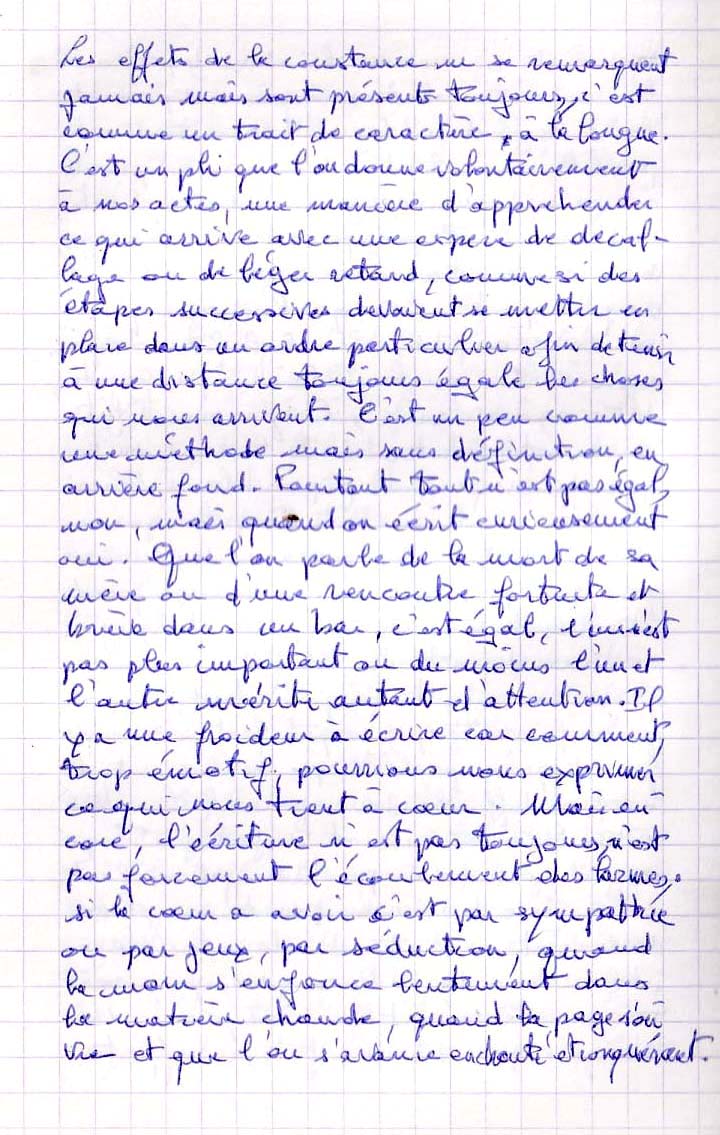 Les effets de la constance ne se remarquent
jamais mais sont présents toujours, c'est
comme un trait de caractère, à la longue.
C'est un pli que l'on donne volontairement
à nos actes, une manière d'appréhender
ce qui arrive avec une espece de décal-
lage ou de léger retard, comme si des
étapes successives devaient se mettre en
place dans un ordre particulier afin de tenir
à une distance toujours égale les choses
qui nous arrivent. C'est un peu comme
une méthode mais sans définition, en
arrière fond. Pourtant tout n'est pas égal,
non, mais quand on écrit curieusement
oui. Que l'on parle de la mort de sa
mère ou d'une rencontre fortuite et
brève dans un bar, c'est égal, l'un n'est
pas plus important ou du moins l'un et
l'autre mérite autant d'attention. Il
y a une froideur à écrire car comment,
trop émotif, pourrions nous exprimer
ce qui nous tient à cœur. Mais en-
core, l'écriture n'est pas toujours, n'est
pas forcement l'écoulement des larmes,
si le cœur a avoir c'est par sympathie
ou par jeux, par séduction, quand
la main s'enfonce lentement dans
la matière chaude, quand la page s'ou
vre et que l'on s'avance enchanté et conquérant.